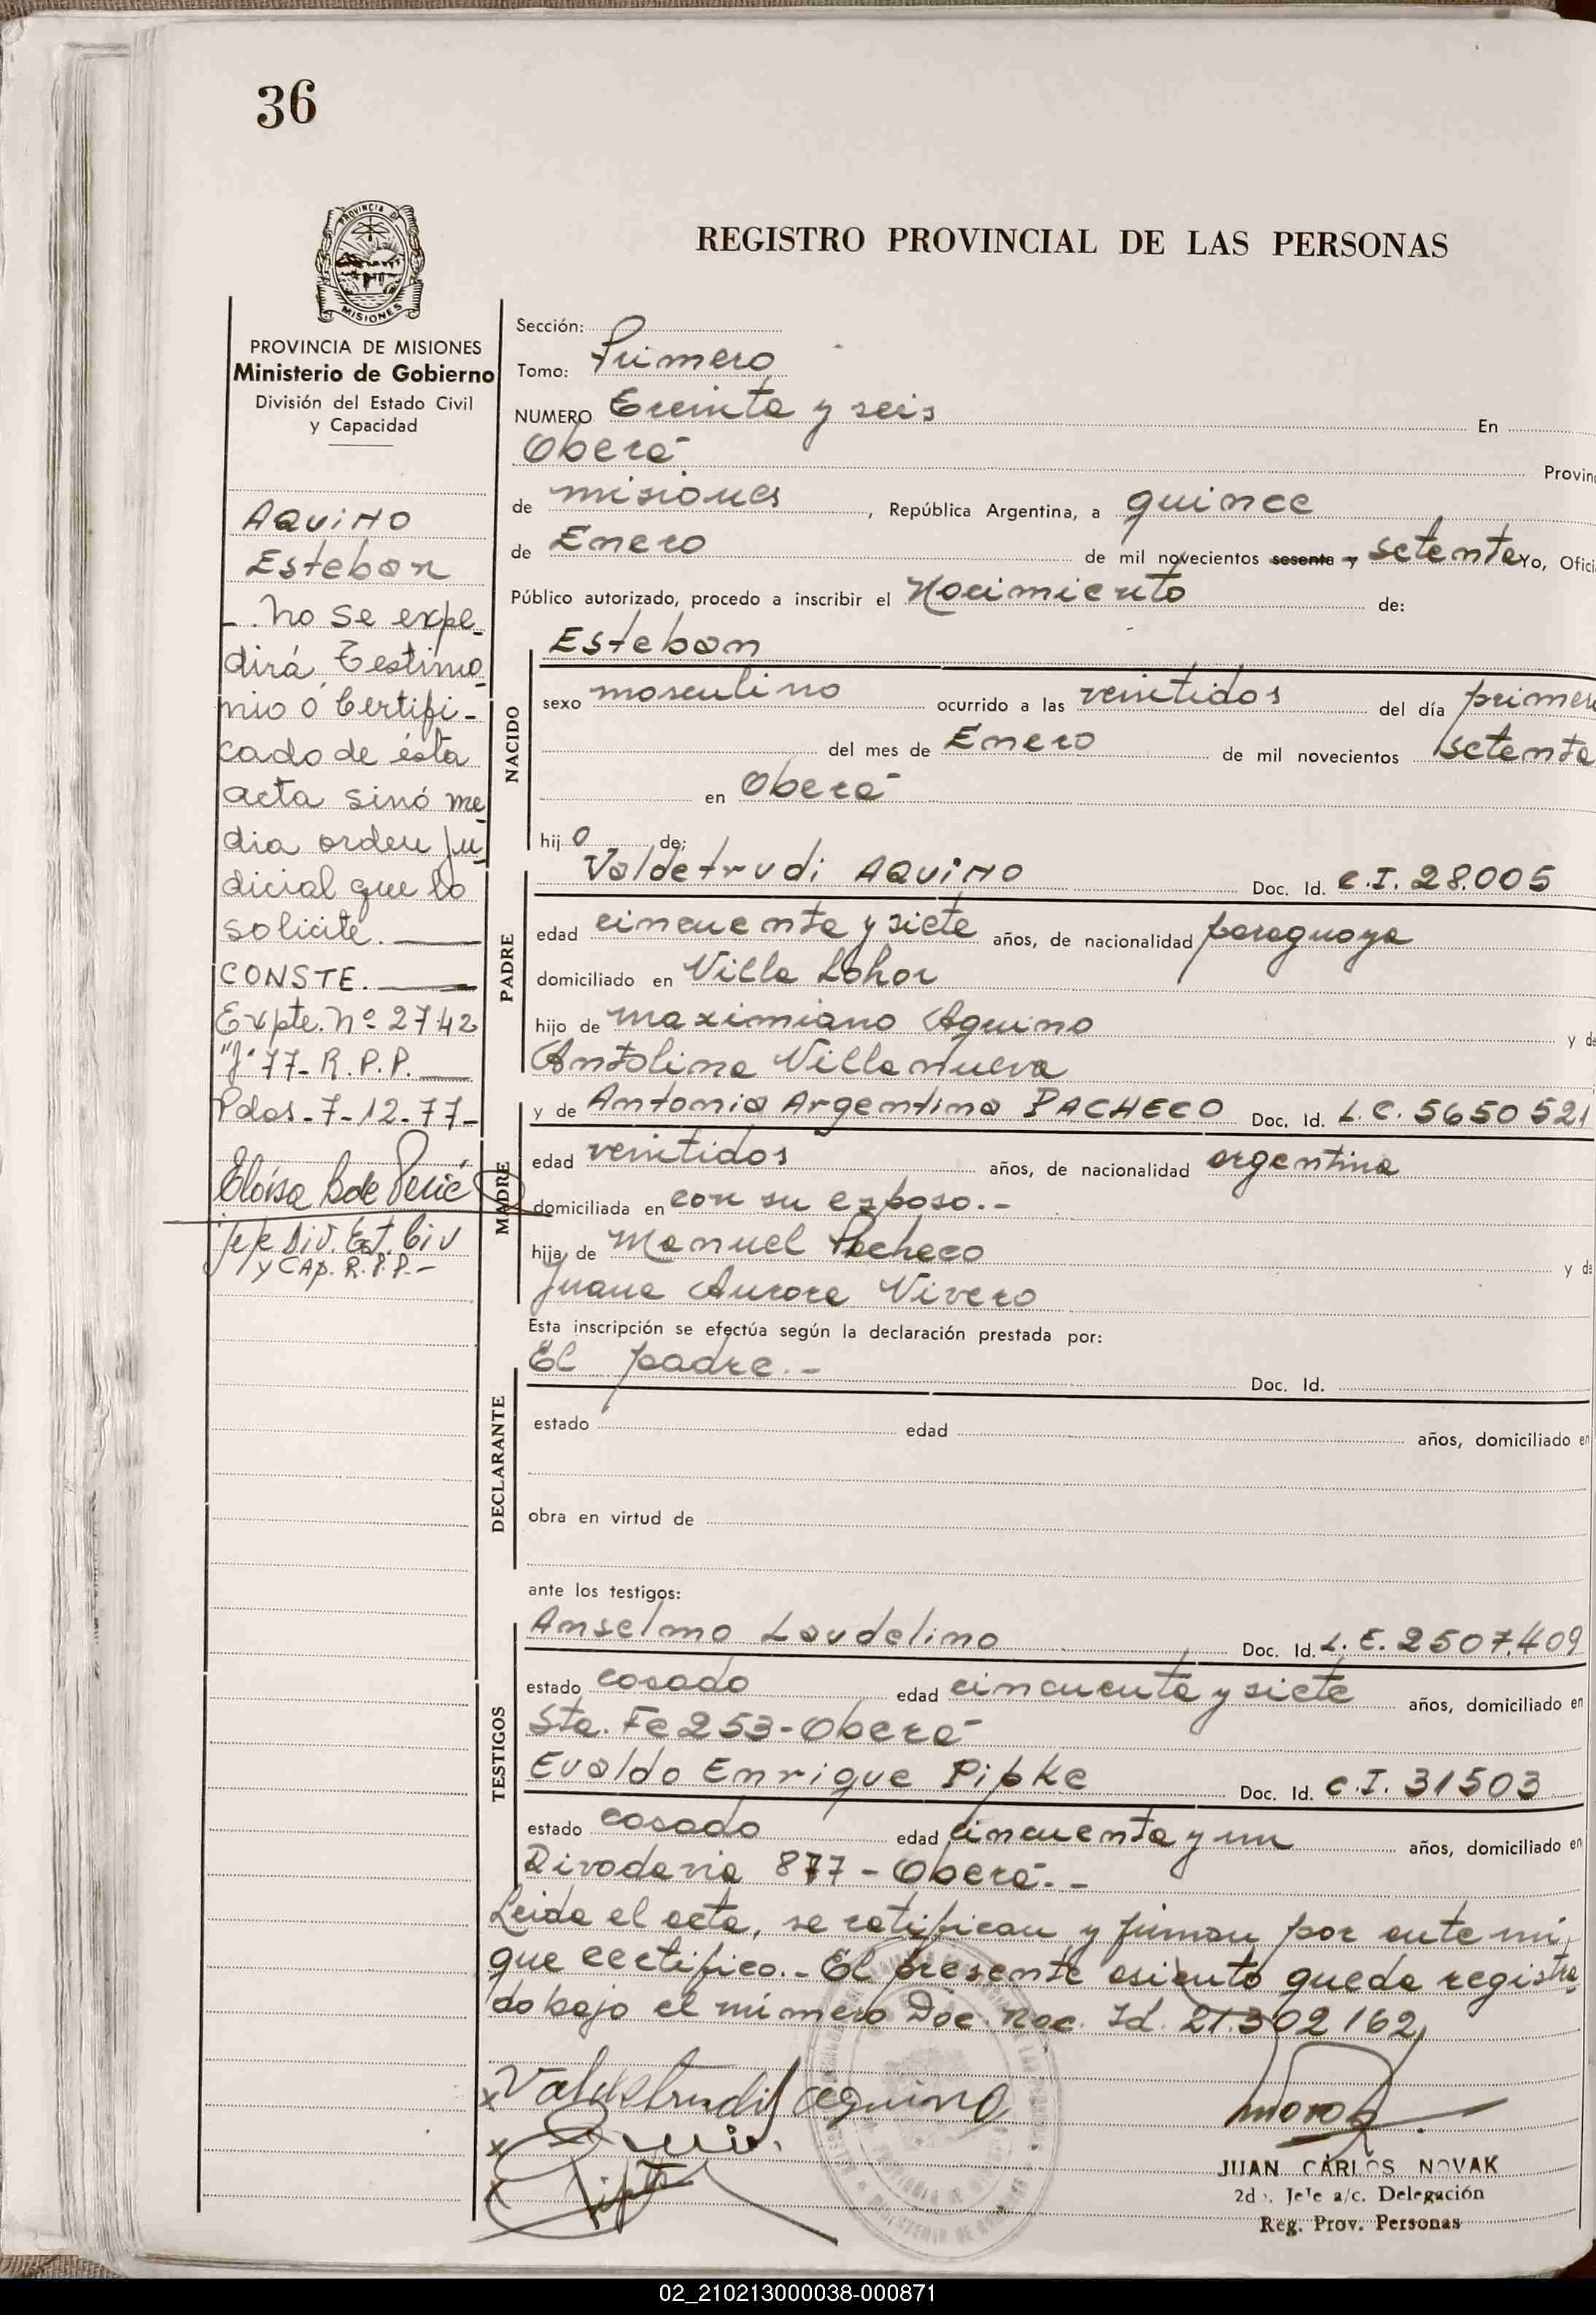 36
PROVINCIA DE
MISIONES
REGISTRO PROVINCIAL DE LAS PERSONAS
PROVINCIA DE MISIONES
Ministerio de Gobierno
División del Estado Civil
y Capacidad
AQUINO
Esteban
_. No se expe_
dirá Testimo_
nio ó Certifi-
cado de ésta
acta sinó me_
dia orden Ju_
dicial que lo
solicite.
CONSTE.
Expte. Nº 2742
"J" 77- R.P.P.
Pdas-7-12-77-
Jefe Div. Est. Civ
y CAp. R.P.P.-
Sección:
Tomo: Primero
NUMERO Treinta y seis En
Oberá Provin
de misiones , República Argentina, a quince
de Enero de mil novecientos sesenta y setenta Yo, Ofici
Público autorizado, procedo a inscribir el Nacimiento de:
Esteban
NACIDO
sexo masculino ocurrido a las veintidos del día primer
del mes de Enero de mil novecientos setenta
en Oberá
hij o de:
PADRE
Valdetrudi AQUINO Doc. Id. C.I. 28.005
edad cincuenta y siete años, de nacionalidad paraguaya
domiciliado en Villa Lohor
hijo de Maximiano Aquino y de
Antolina Villanueva
MADRE
y de Antonia Argentina PACHECO Doc. Id. L.C. 5650521
edad veintidos años, de nacionalidad argentina
domiciliada en con su esposo.-
hija de Manuel Pacheco y de
Juana Aurora Vivero
Esta inscripción se efectúa según la declaración prestada por:
El padre.- Doc. Id.
DECLARANTE
estado edad años, domiciliado en
obra en virtud de
ante los testigos:
TESTIGOS
Anselmo Laudelino Doc. Id. L.E. 2507.409
estado casado edad cincuenta y siete años, domiciliado en
Sta. Fe 253-Oberá
Evaldo Enrique Pipke Doc. Id. C.I. 31503
estado casado edad cincuenta y un años, domiciliado en
Rivadavia 877-Oberá.-
Leida el acta, se ratifican y firman por ante mí,
que certifico.- El presente asiento queda registra_
do bajo el número Doc. Nac. Id. 21.302162,
Valdetrudi Aquino
JUAN CARLOS NOVAK
2do. Jefe a/c. Delegación
Reg. Prov. Personas
02_210213000038-000871